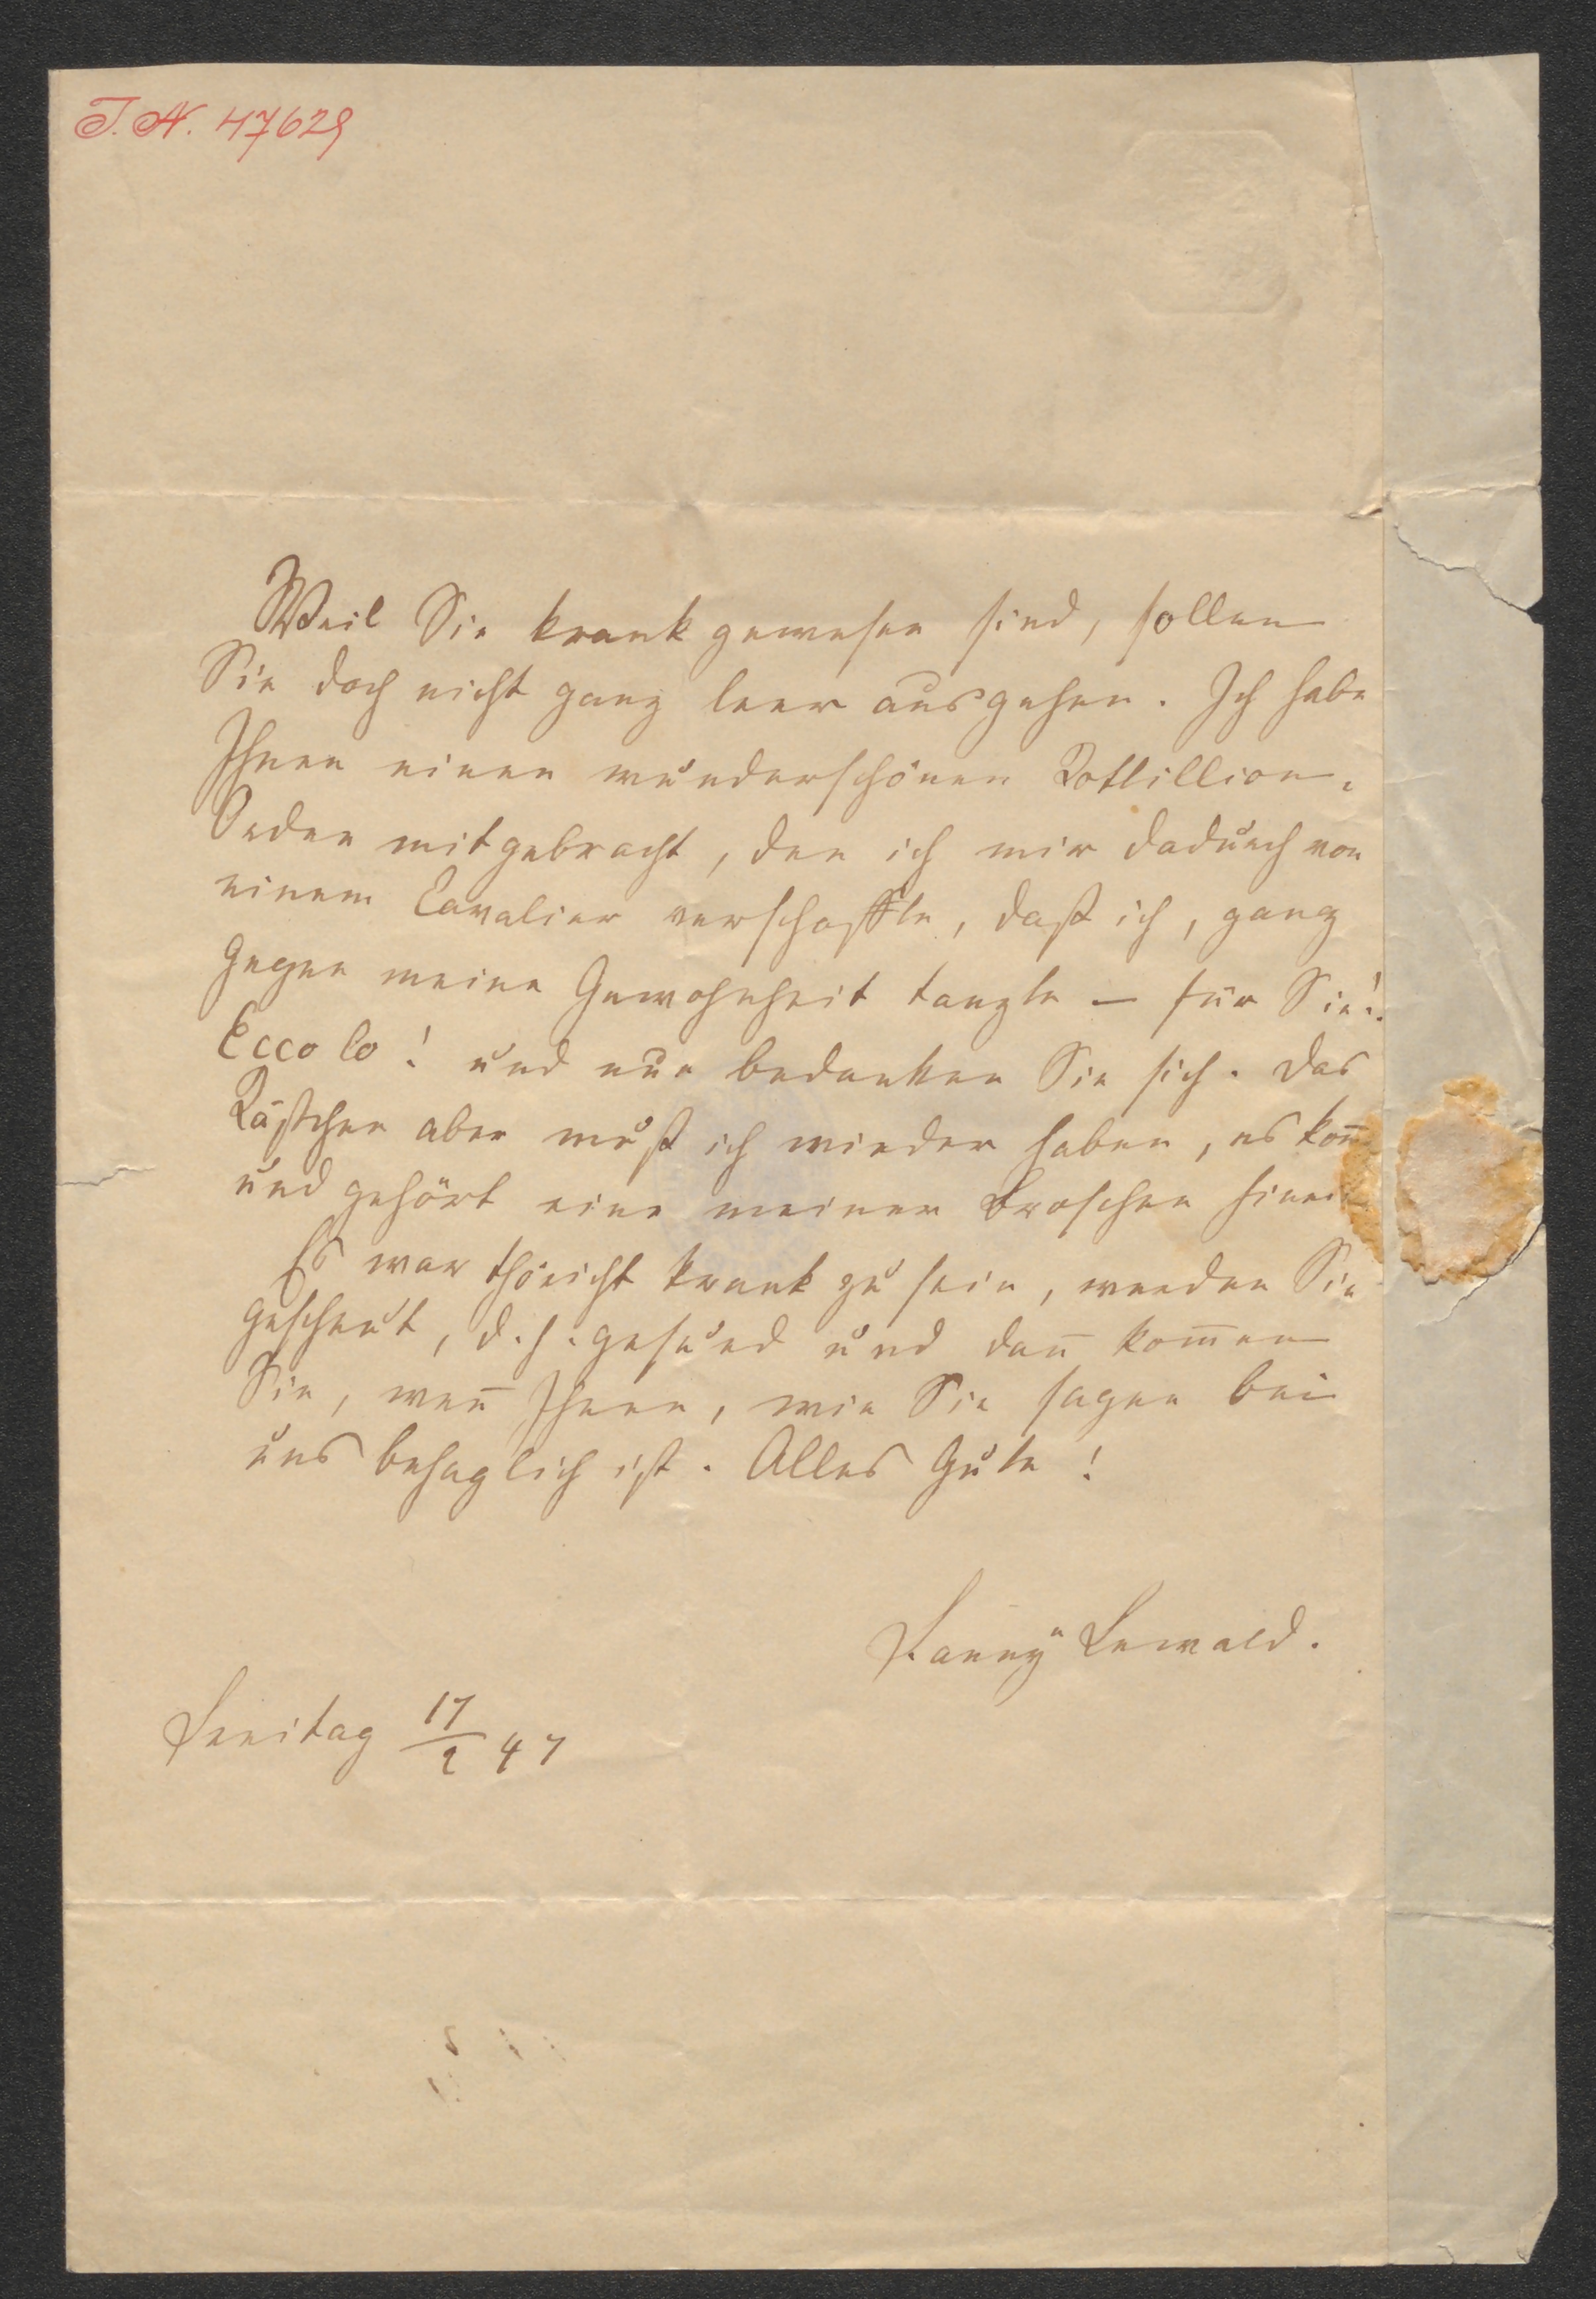 I. N. 47629
Weil Sie krank gewesen sind, sollen
Sie doch nicht ganz leer ausgehen. Ich habe
Ihnen einen wunderschönen Kottillion-
Orden mitgebracht, den ich mir dadurch von
einem Cavalier verschaffte, daß ich, ganz
gegen meine Gewohnheit tanzte — für Sie!
Ecco lo! und nun bedanken Sie sich. Das
Kästchen aber muß ich wieder haben, es kom̄
und gehört eine meiner Broschen hinei
Es war thöricht krank zu sein, werden Sie
gescheut, d. h. gesund und dan̄ kom̄en
Sie, wen̄ Ihnen, wie Sie sagen bei
uns behaglich ist. Alles Gute!
Fanny Lewald.
Freitag 17/2 47